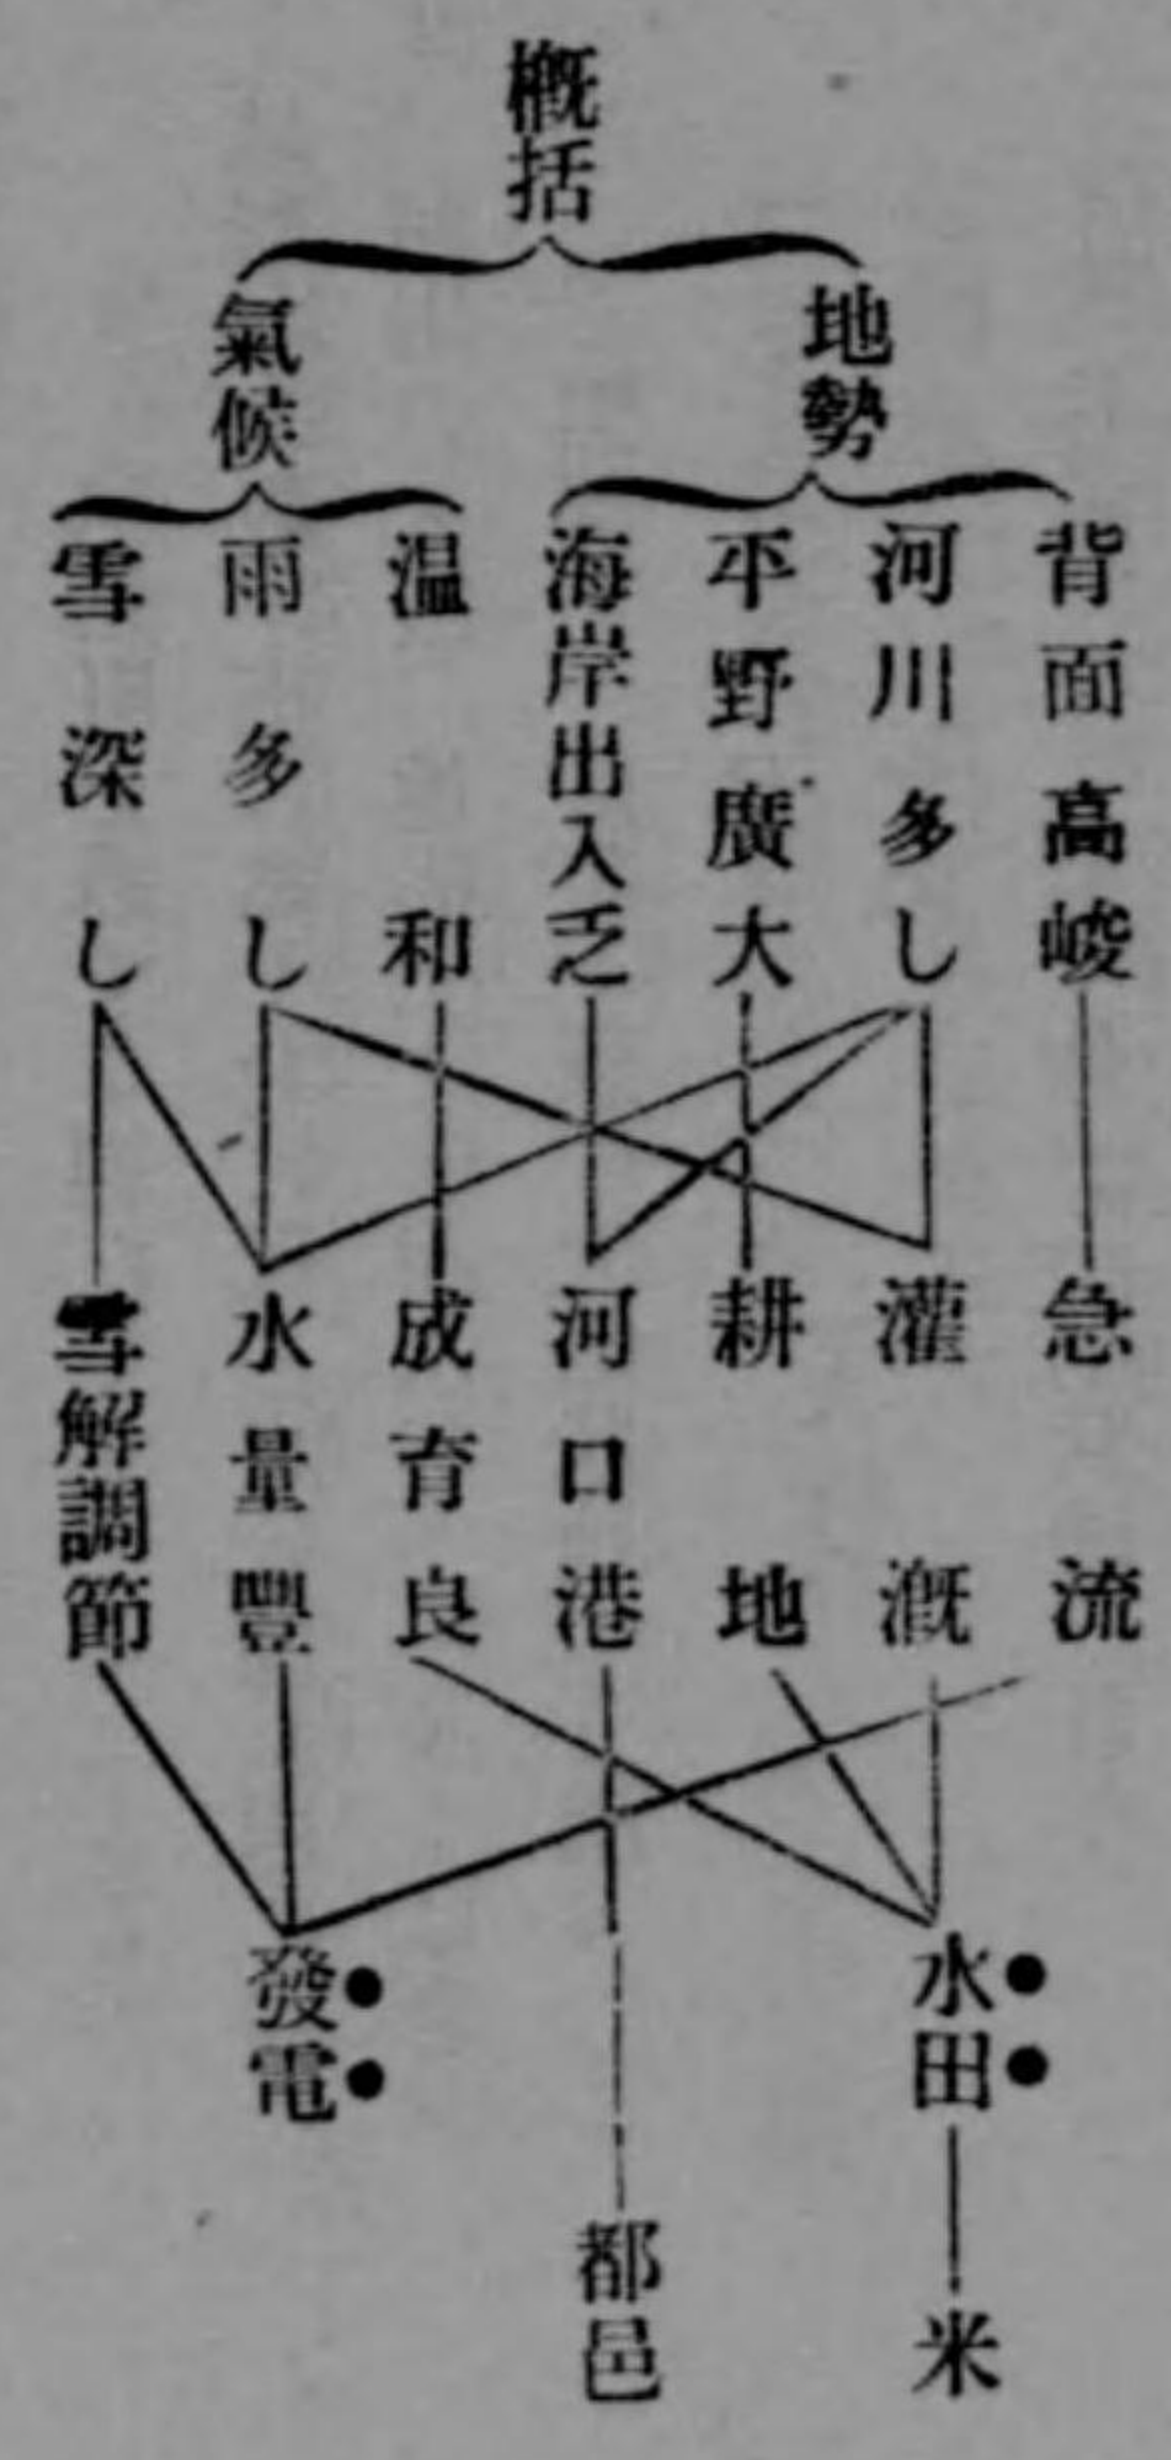 概括
地勢
氣候
背面高峻
河川多し
平野廣大
海岸出入乏
温和
雨多し
雪深し
急流
灌漑
耕地
河口港
成育良
水量豐
雪解調節
水田
發電
米
都邑